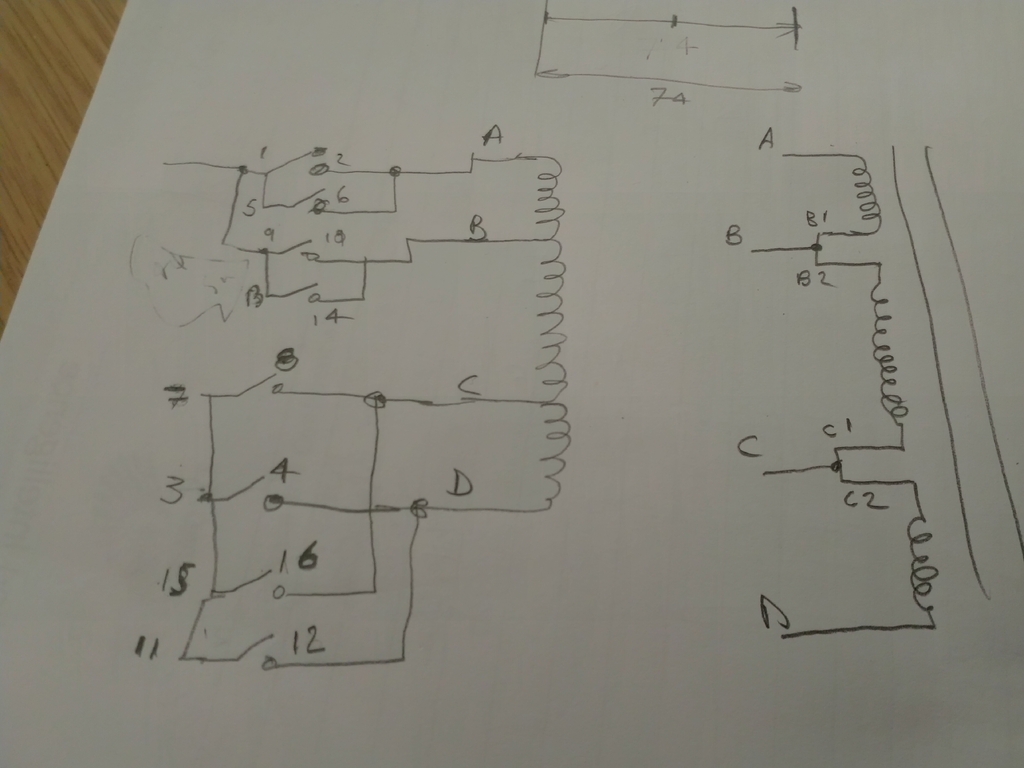 74
A
1 2
5 6
B
9 10
13
14
8
7
C
4
3
D
16
15
11 12
A
B1
B
B2
C1
C
C2
D